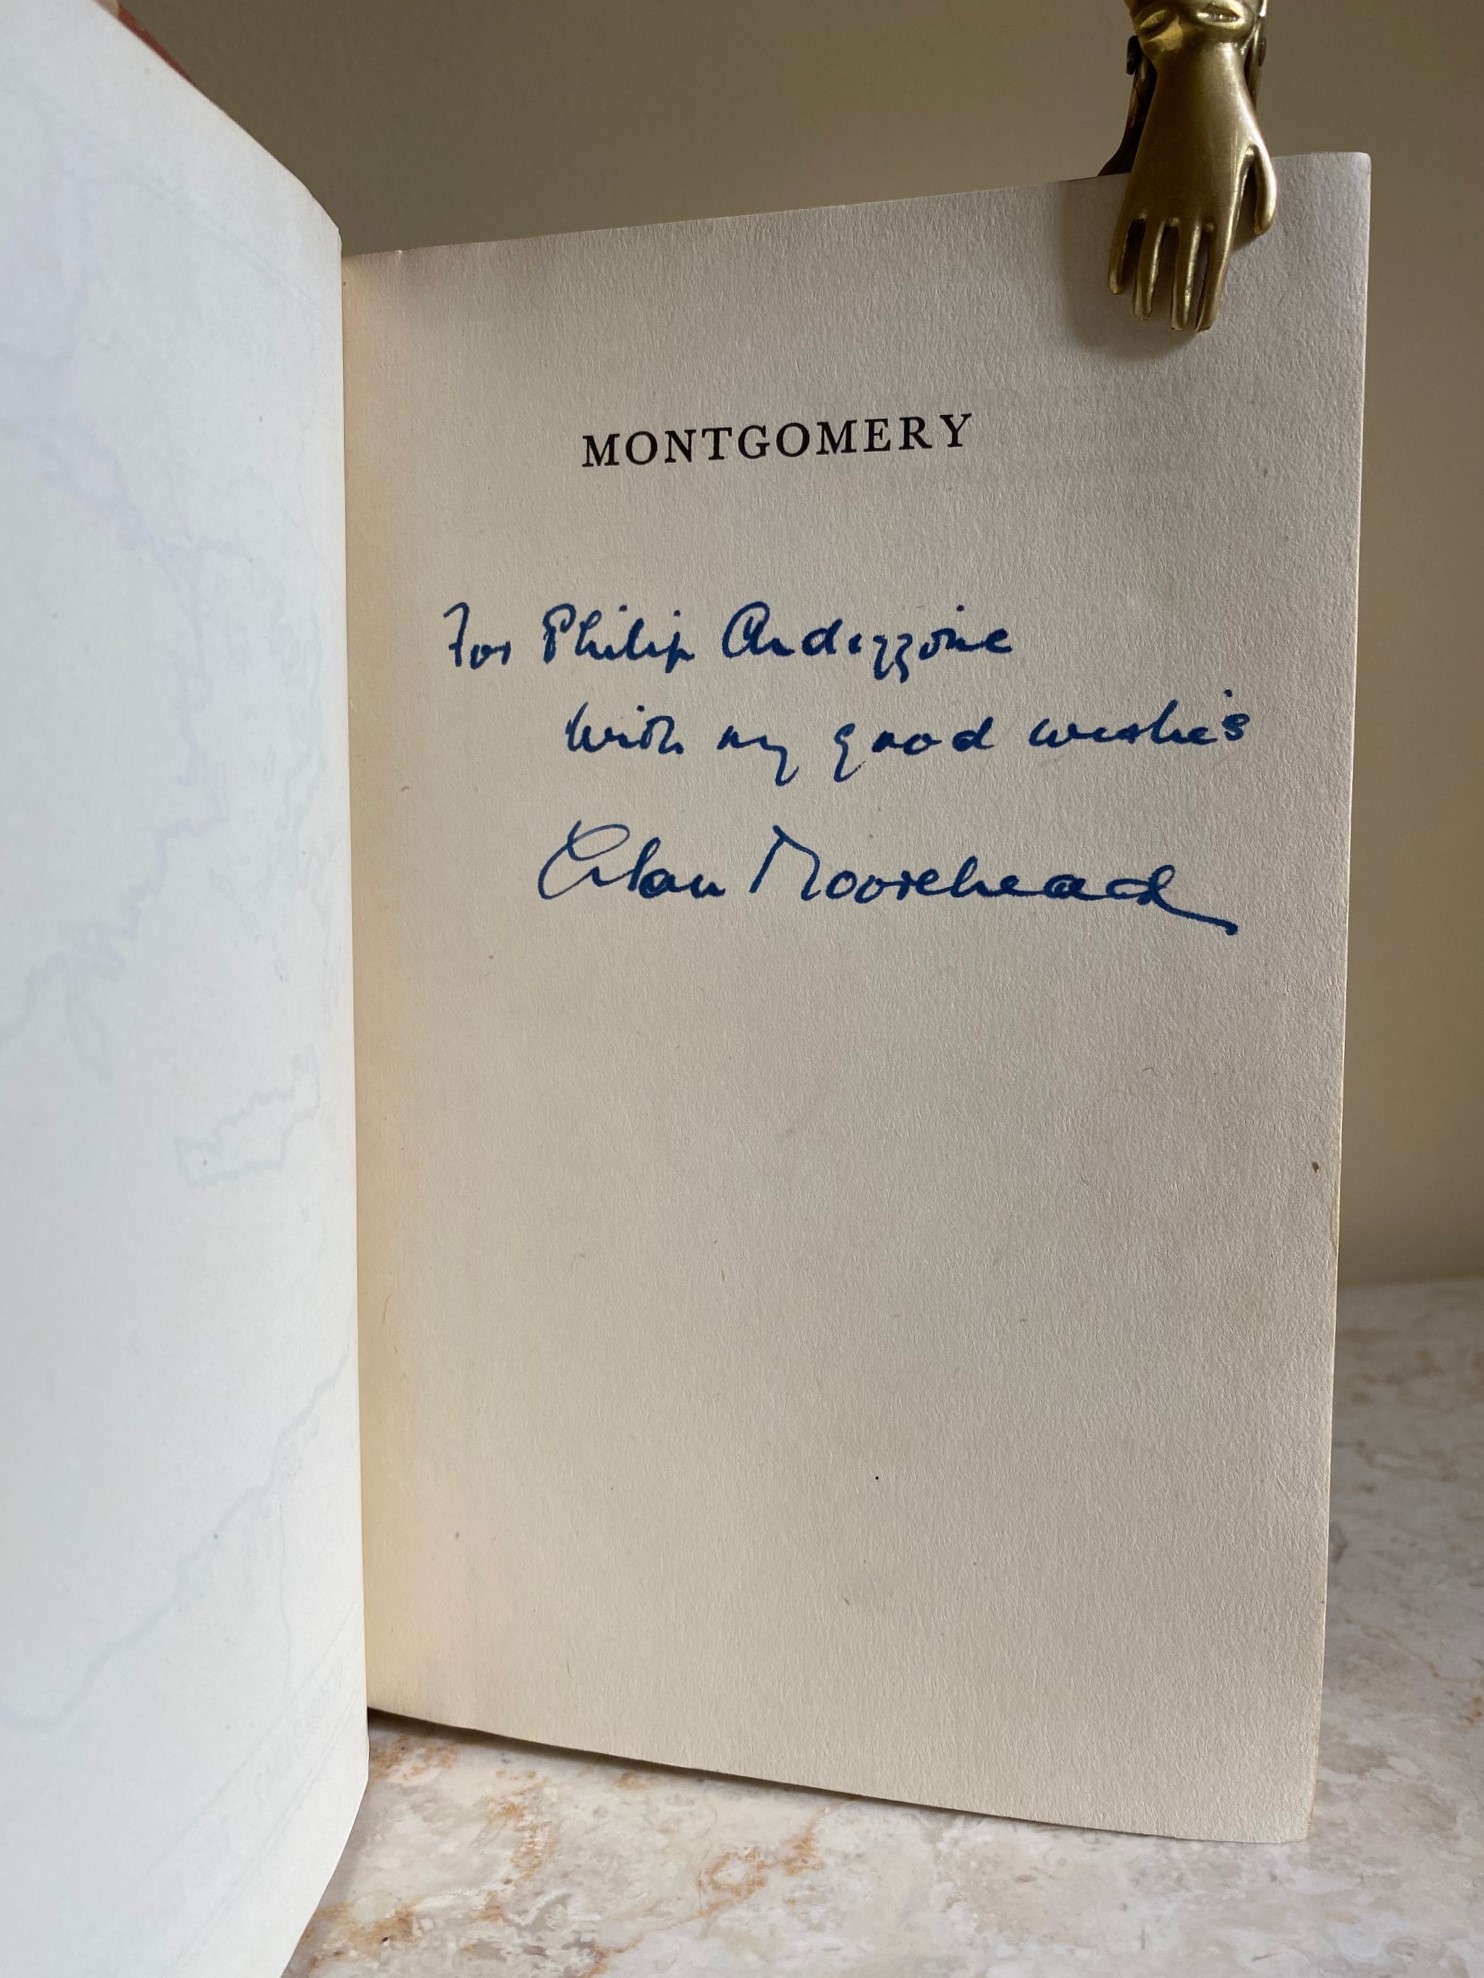 MONTGOMERY
For Philip Ardizzone
with my good wishes
Alan Moorehead